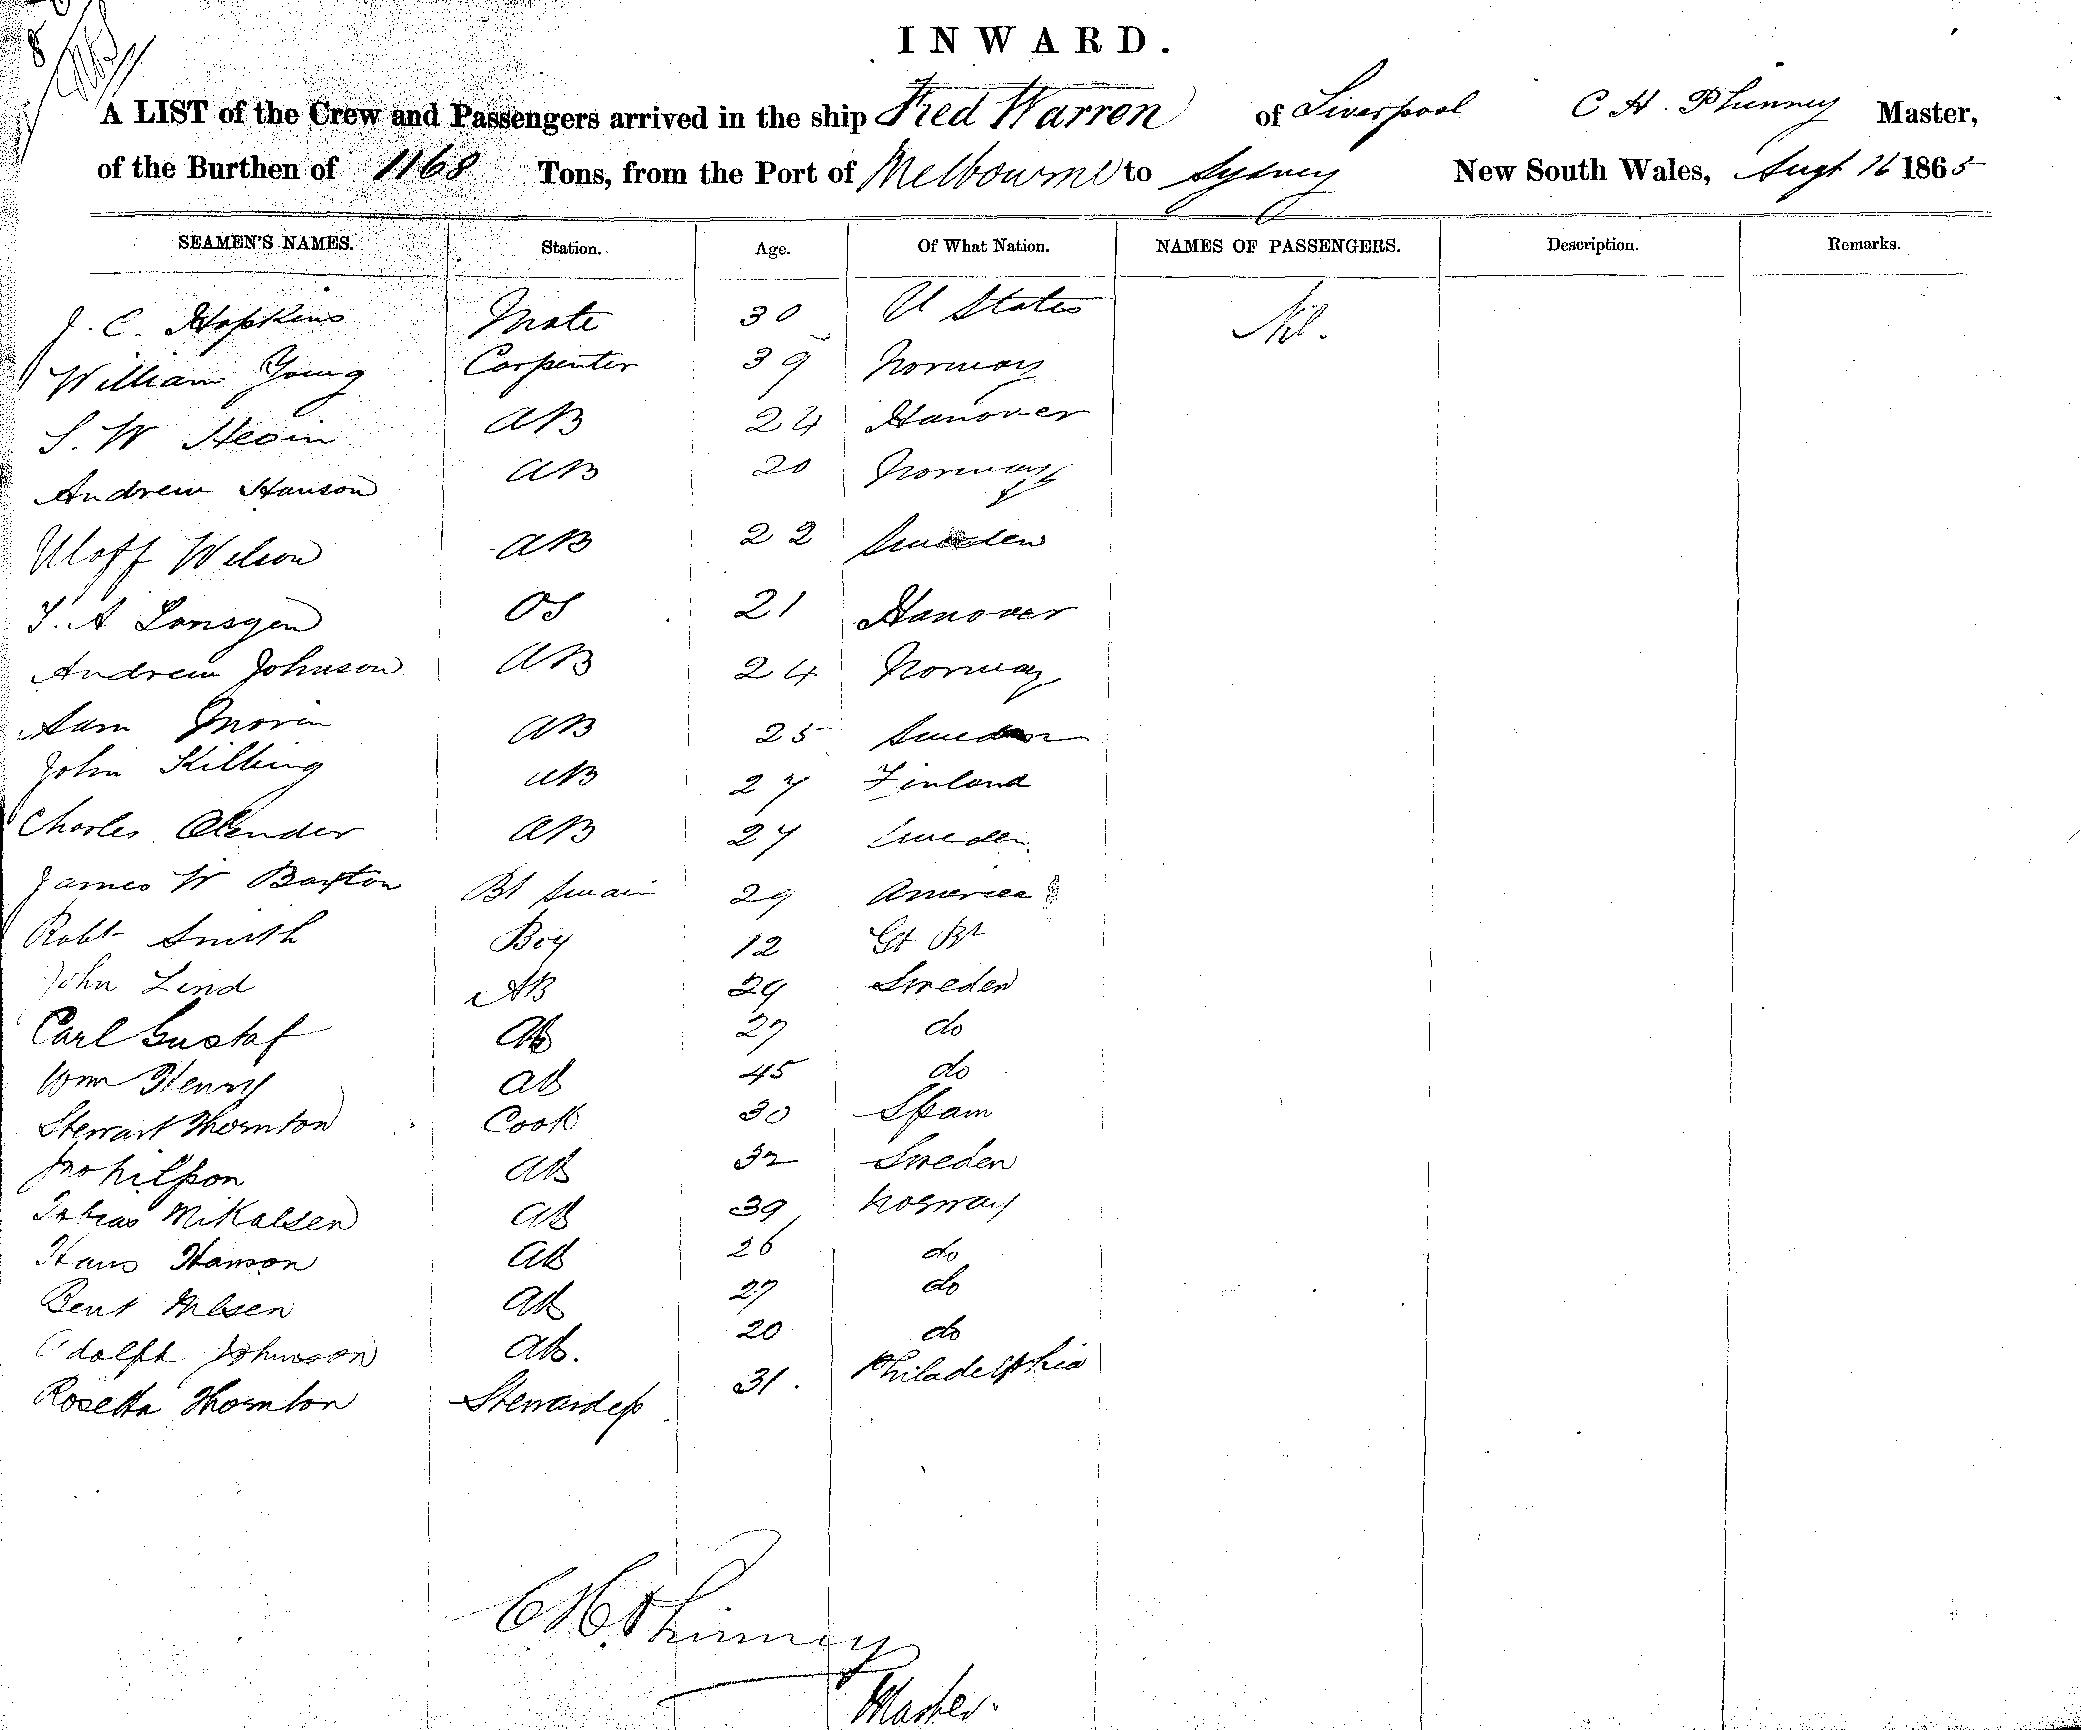 INWARD.
A LIST of the Crew and Passengers arrived in the ship Fred Warren of Liverpool C H. Phinney Master,
of the Burthen of 1168 Tons, from the Port of Melbourne to Sydney New South Wales, Augt 16 1865
SEAMEN'S NAMES. Station. Age. Of What Nation. NAMES OF PASSENGERS. Description. Remarks.
J. C. Hopkins Mate 30 U States Nil.
William Young Carpenter 39 Norway
S. W AB 24 Hanover
Andrew Hanson AB 20 Norway
Uloff Wilson AB 22 Sweden
A OS 21 Hanover
Andrew Johnson AB 24 Norway
Sam Morin AB 25 Sweden
John Killing AB 27 Finland
Charles Clender AB 27 Sweden
James W Barton Bt Swain 29 America
Robt Smith Boy 12 Gt Bt
John Lind AB 29 Sweden
Carl Gustaf AB 27 do
Wm Henry AB 45 do
Stewart Thornton Cook 30 Spain
Jno Nilsson AB 32 Sweden
Tobias Mikalsen AB 39 Norway
Hans Hanson AB 26 do
Bent Nilsen AB 27 do
Adolph Johnson AB. 20 do
Rosetta Thornton Stewardess 31. Philadelphia
C H Phinney
Master.